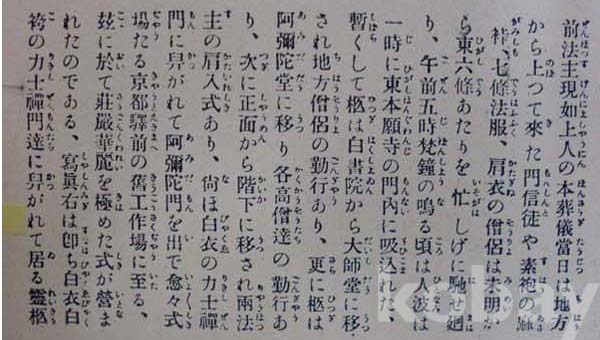 前法主現如上人の本葬儀當日は地方
から上つて來た門信徒や素袍の麻
裃、七條法服、肩衣の僧侶は未明か
ら東六條あたりを忙しげに馳せ廻
り、午前五時梵鐘の鳴る頃は人波は
一時に東本願寺の門內に吸込れた、
暫くして柩は白書院から大師堂に移
され地方僧侶の勤行あり、更に柩は
阿彌陀堂に移り各高僧達の勤行あ
り、次に正面から階下に移され兩法
主の肩入式あり、尙ほ白衣の力士禪
門に舁がれて阿彌陀門を出で愈々式
場たる京都驛前の舊工作場に至る、
玆に於て莊嚴華麗を極めた式が營ま
れたのである、寫眞右は卽ち白衣白
袴の力士禪門達に舁がれて居る靈柩
kcbay